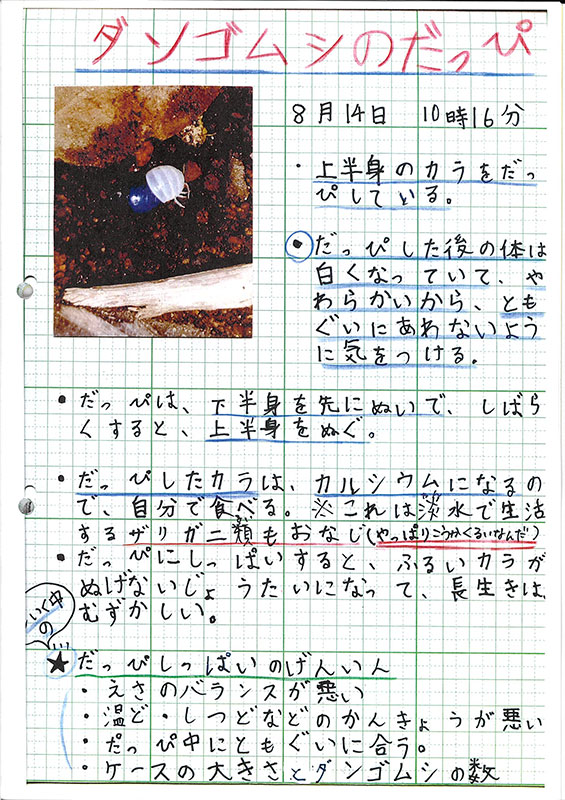 ダンゴムシのだっぴ
8月14日 10時16分
・上半身のカラをだっ
ぴしている。
・だっぴした後の体は
白くなっていて、や
わらかいから、とも
ぐいにあわないよう
に気をつける。
・だっぴは、下半身を先にぬいで、しばら
くすると、上半身をぬぐ。
・だっぴしたカラは、カルシウムになるの
で、自分で食べる。※これは淡水で生活
するザリガニ類もおなじ(やっぱりこうかくるいなんだ)
・だっぴにしっぱいすると、ふるいカラが
ぬげないじょうたいになって、長生きは、
むずかしい。
いく中
の
★だっぴしっぱいのげんいん
・えさのバランスが悪い
・温ど・しつどなどのかんきょうが悪い
・だっぴ中にともぐいに合う。
・ケースの大きさとダンゴムシの数